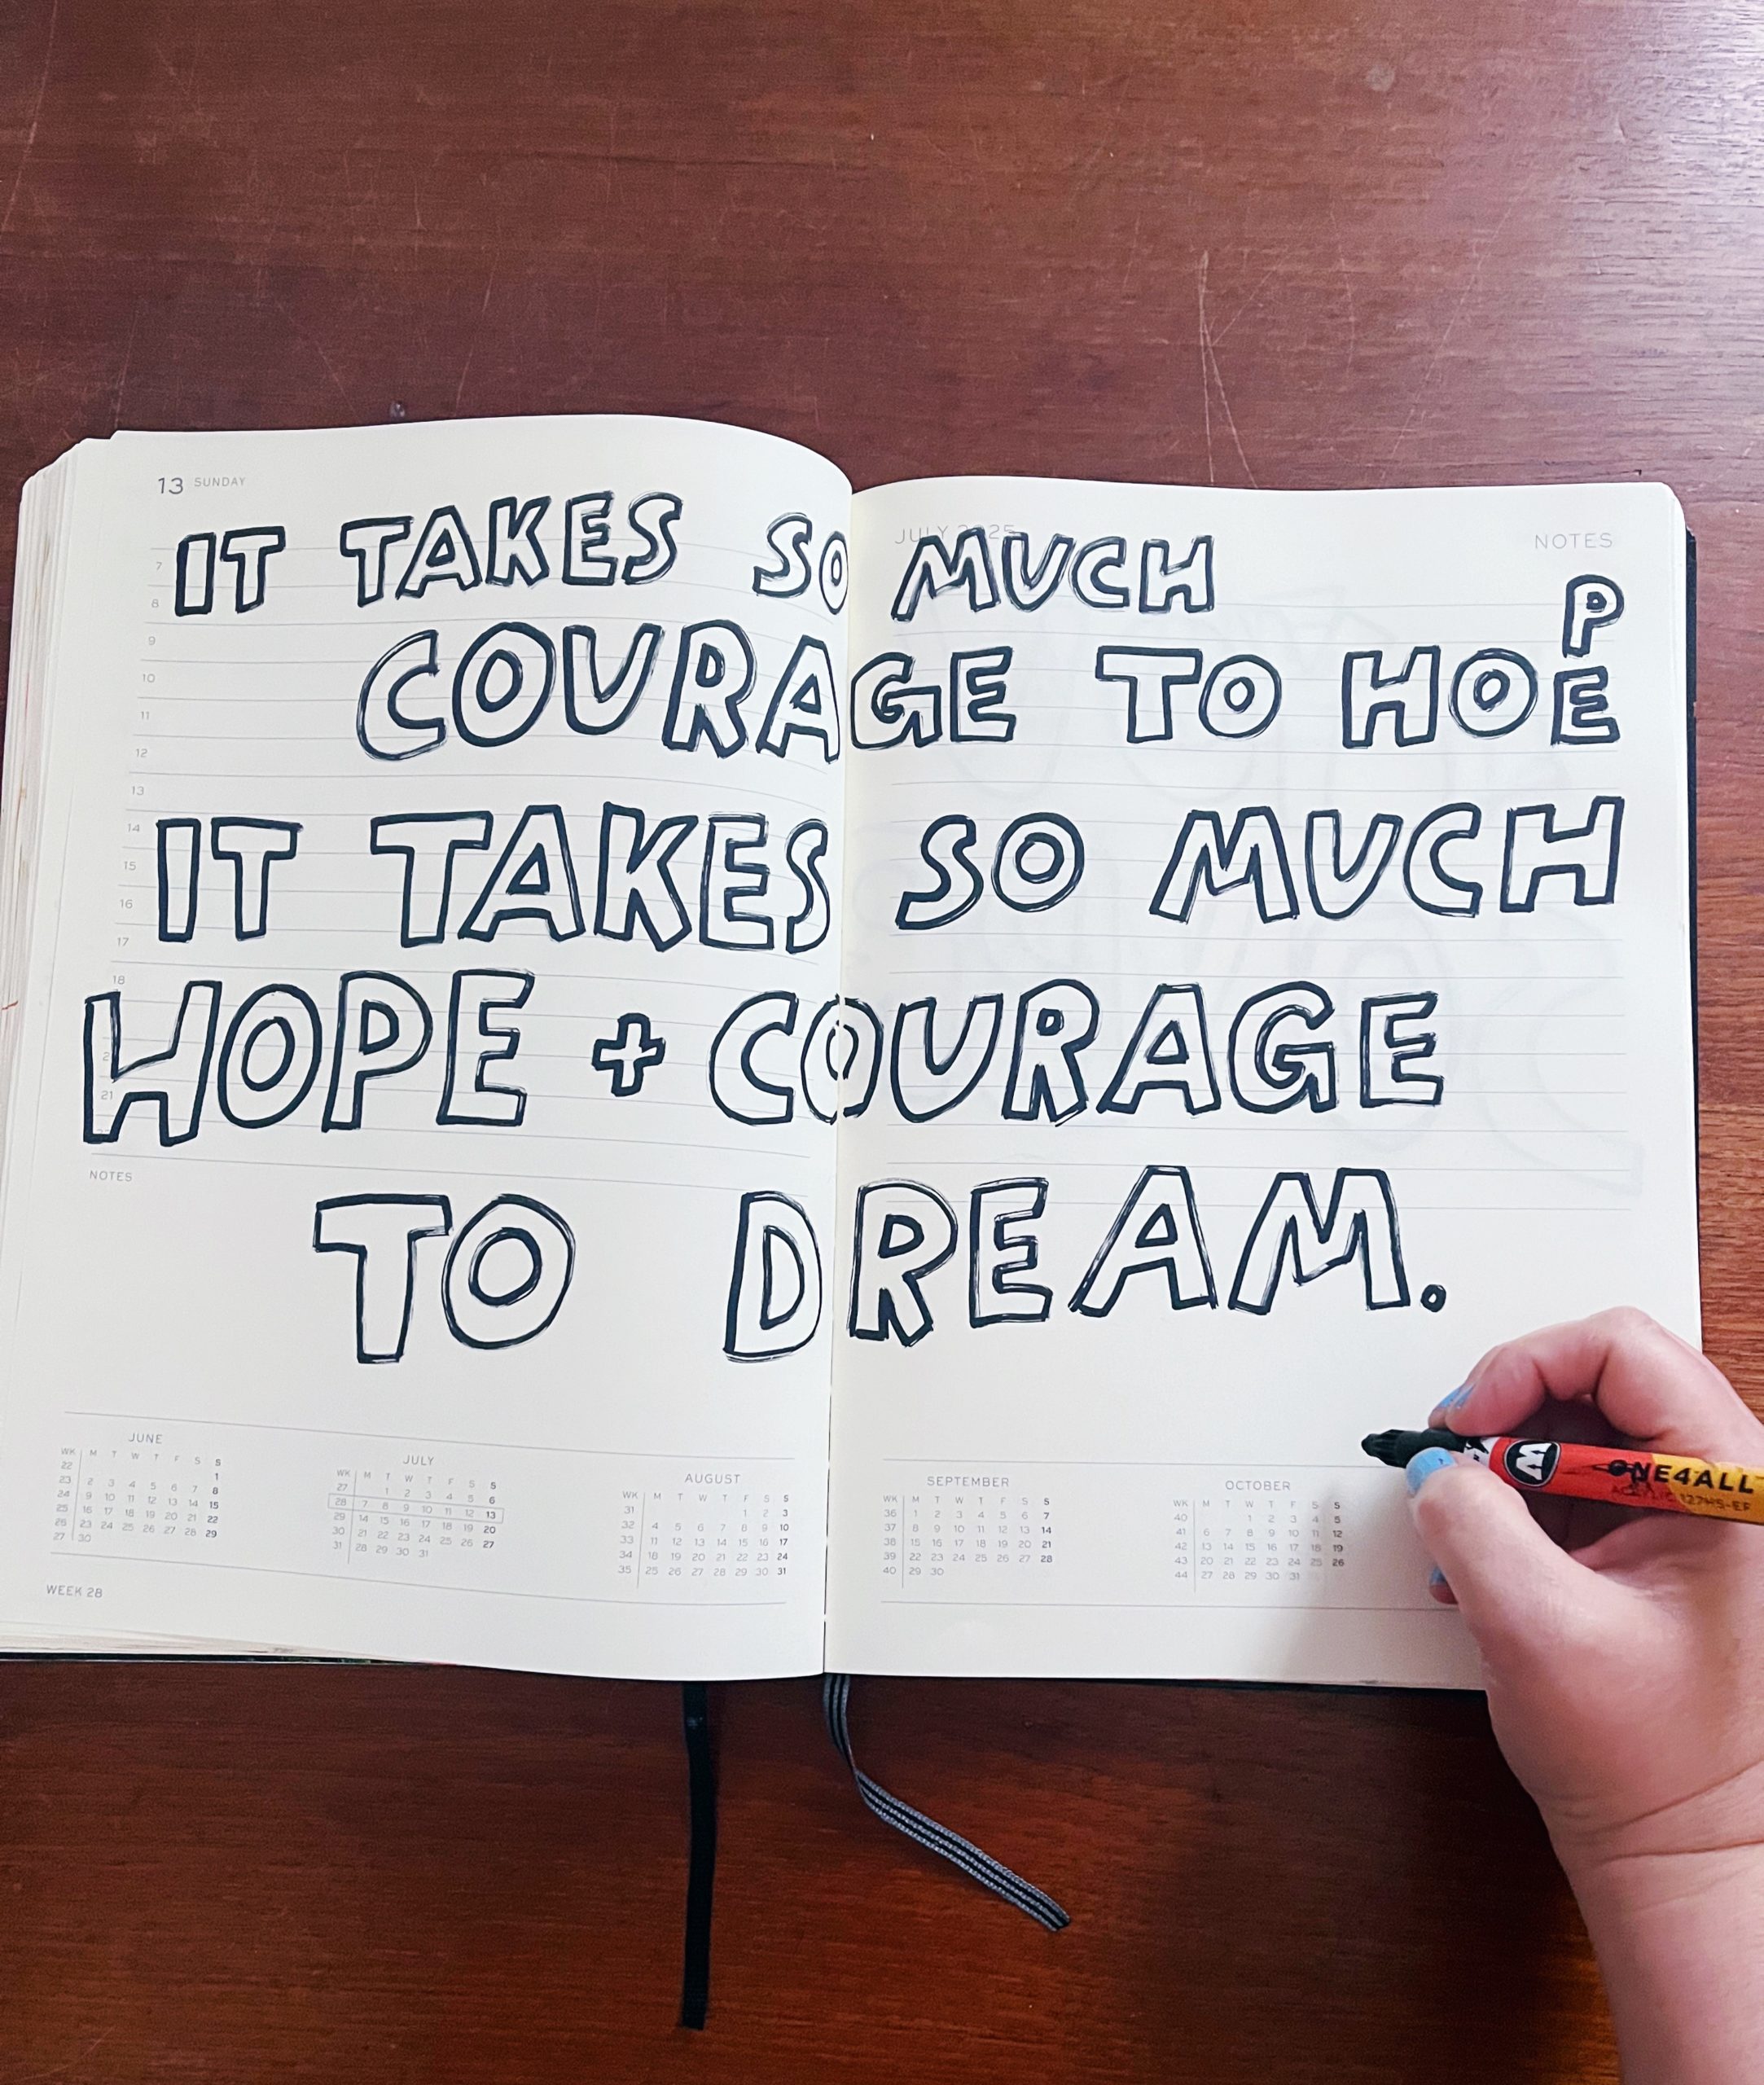 13 SUNDAY
JULY 2025 NOTES
IT TAKES SO MUCH
COURAGE TO HOPE
IT TAKES SO MUCH
HOPE + COURAGE
TO DREAM.
7
8
9
10
11
12
13
14
15
16
17
18
21
NOTES
JUNE
WK M T W T F S S
22 1
23 2 3 4 5 6 7 8
24 9 10 11 12 13 14 15
25 16 17 18 19 20 21 22
26 23 24 25 26 27 28 29
27 30
JULY
WK M T W T F S S
27 1 2 3 4 5 6
28 7 8 9 10 11 12 13
29 14 15 16 17 18 19 20
30 21 22 23 24 25 26 27
31 28 29 30 31
AUGUST
WK M T W T F S S
31 1 2 3
32 4 5 6 7 8 9 10
33 11 12 13 14 15 16 17
34 18 19 20 21 22 23 24
35 25 26 27 28 29 30 31
SEPTEMBER
WK M T W T F S S
36 1 2 3 4 5 6 7
37 8 9 10 11 12 13 14
38 15 16 17 18 19 20 21
39 22 23 24 25 26 27 28
40 29 30
OCTOBER
WK M T W T F S S
40 1 2 3 4 5
41 6 7 8 9 10 11 12
42 13 14 15 16 17 18 19
43 20 21 22 23 24 25 26
44 27 28 29 30 31
WEEK 28
ONE4ALL
ACRYLIC 127HS-EF